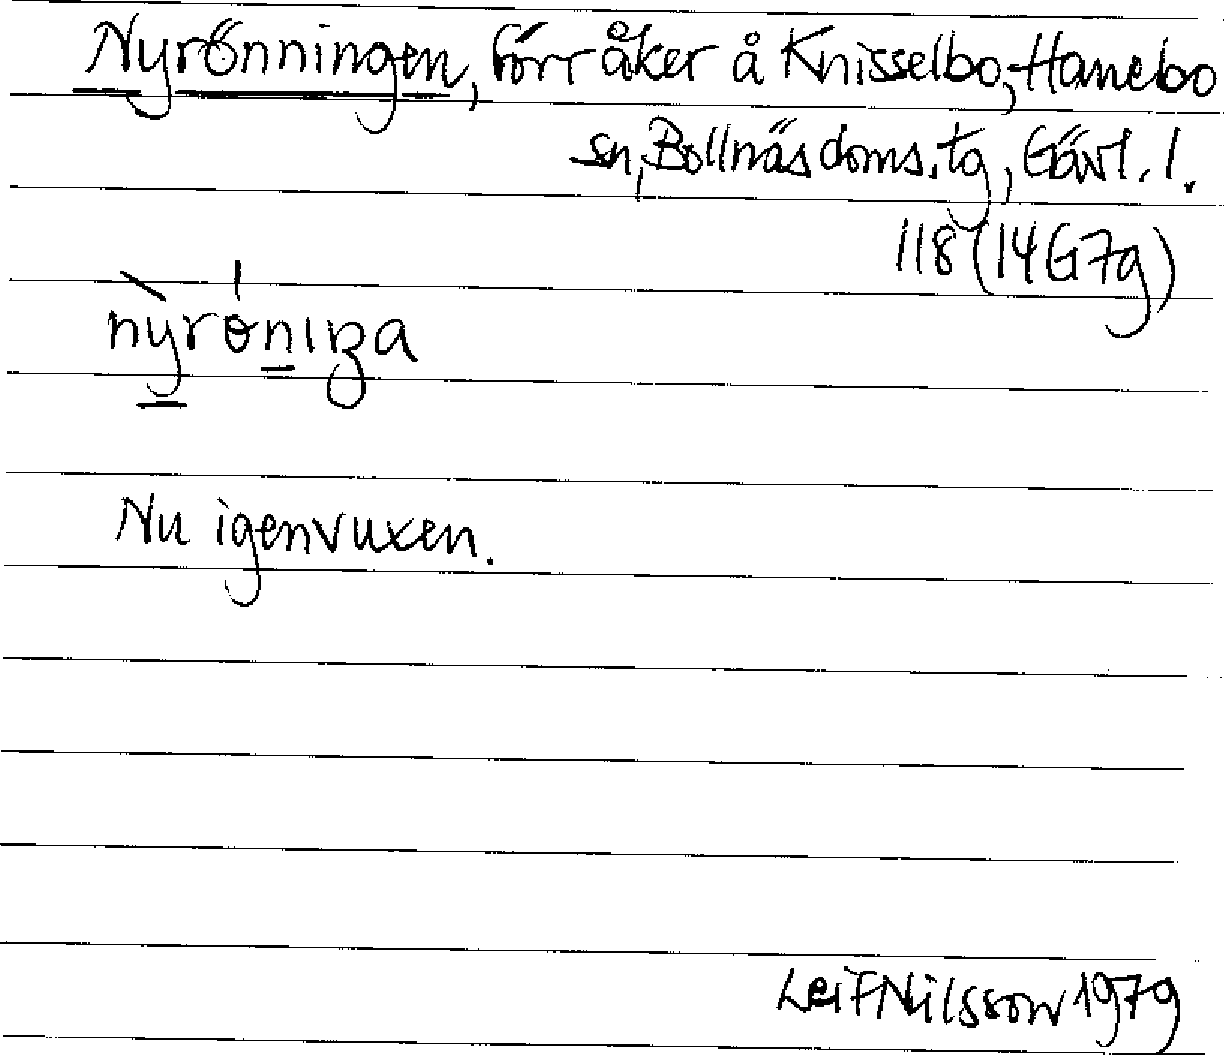 Nyrönningen, förr åker å Knisselbo, Hanebo
sn, Bollnäs doms.tg, Gävl. l.
118 (14G7g)
nyrönıŋa
Nu igenvuxen.
Leif Nilsson 1979